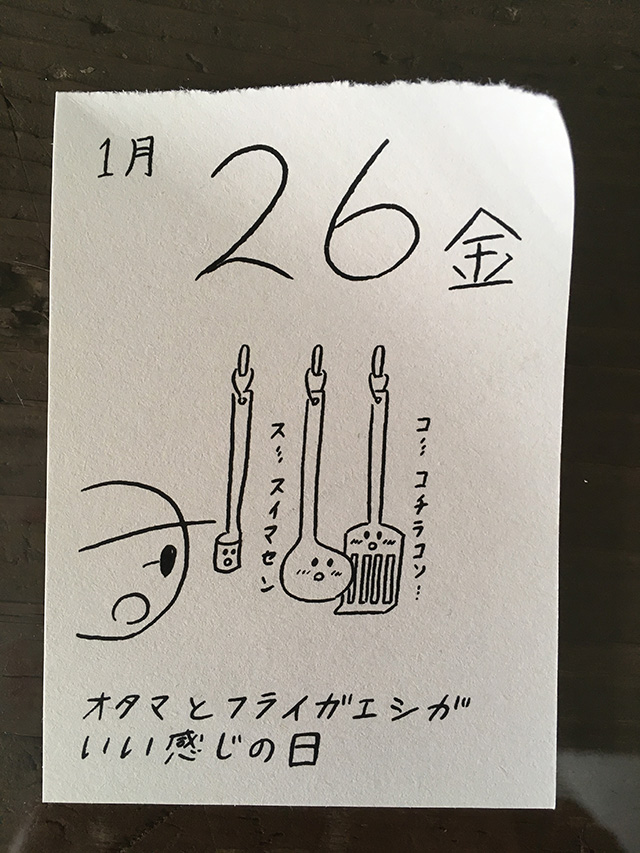 1月
26 金
コ…コチラコソ…
ス…スイマセン
オタマとフライガエシが
いい感じの日